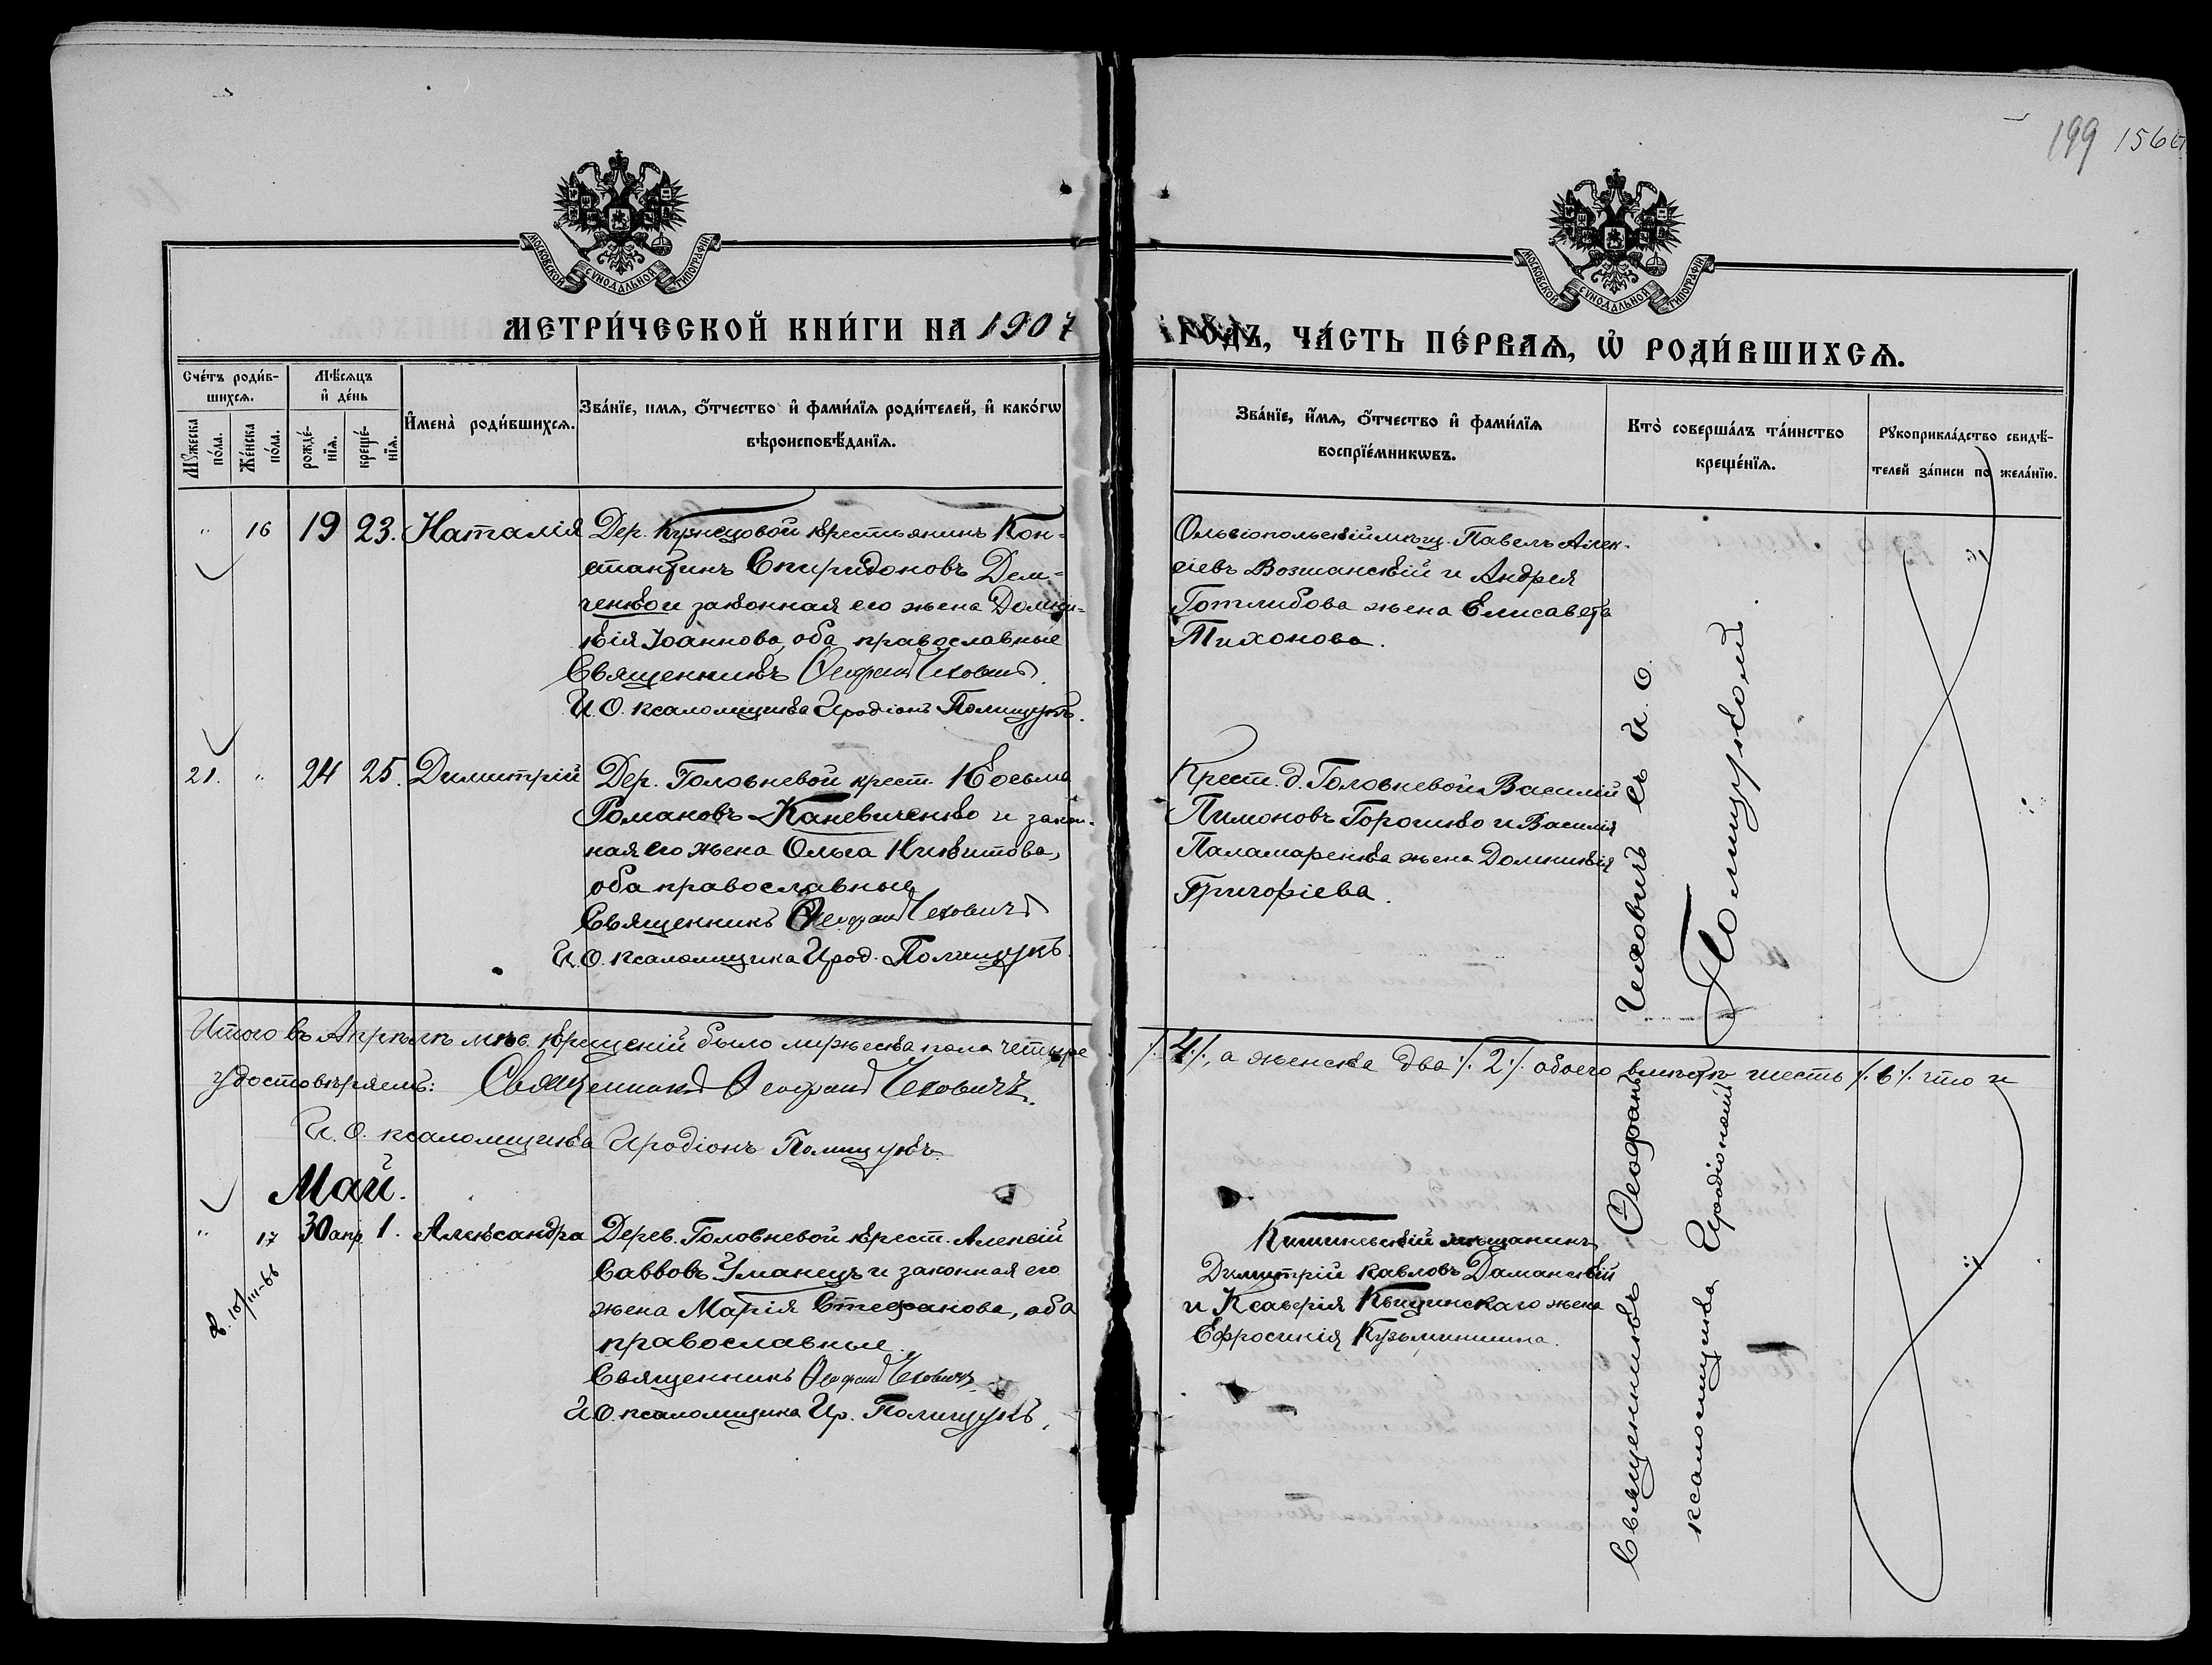 199 156
МОСКОВСКОЙ СѴНОДАЛЬНОЙ ТИПОГРАФІИ
МОСКОВСКОЙ СѴНОДАЛЬНОЙ ТИПОГРАФІИ
МЕТРИ́ЧЕСКОЙ КНИ́ГИ НА 1907
ГОДЪ, ЧА́СТЬ ПЕ́РВАѦ, Ѡ҆ РОДИ́ВШИХСѦ.
Сче́тъ роди́в-
шихсѧ.
Мѣ́сѧцъ
и҆ де́нь
Мꙋ́жеска
по́ла.
Же́нска
по́ла.
рожде́-
нїѧ.
креще́-
нїѧ.
И҆мена̀ роди́вшихсѧ.
Зва́нїе, имѧ, о҆́тчество и҆ фами́лїѧ роди́телей, и҆ како́гѡ
вѣроисповѣ́данїѧ.
Зва́нїе, и҆́мѧ, о҆́тчество и҆ фами́лїѧ
воспрїе́мникѡвъ.
Кто̀ соверша́лъ та́инство
креще́нїѧ.
Рꙋкоприкла́дство свидѣ́-
телей за́писи по жела́нїю.
" 16 19 23. Наталія
Дер. Кузнецовой крестьянинъ Кон-
стантинъ Спиридоновъ Дем-
ченко и законная его жена Домни-
кія Іоаннова, оба православные
Священникъ Ѳеофанъ Чеховичъ.
И. О. псаломщика Иродіонъ Полищукъ.
Ольвіопольскій мѣщ. Павелъ Алек-
сіевъ Возианскій и Андрея
Готлибова жена Елисавета
Тихонова.
21. " 24 25. Димитрій
Дер. Головневой крест. Косьма
Романовъ Каневиченко и закон-
ная его жена Ольга Никитова,
оба православные
Священникъ Ѳеофанъ Чеховичъ
И. О. псаломщика Ирод. Полищукъ.
Крест. д. Головневой Василій
Пимоновъ Горошко и Василія
Паламаренка жена Домникія
Григоріева.
Итого въ Апрѣлѣ мѣс. крещеній было мужеска пола четыре ·/. 4 ·/., а женска два ·/. 2 ·/. обоего вмѣстѣ шесть ·/. 6 ·/. что и
удостовѣряемъ: Священникъ Ѳеофанъ Чеховичъ.
И. О. псаломщика Иродіонъ Полищукъ
Май.
" 17 30 апр. 1. Александра
Дерев. Головневой крест. Алексій
Саввовъ Уманецъ и законная его
жена Марія Стефанова, оба
православные.
Священникъ Ѳеофанъ Чеховичъ
И. О. псаломщика Ир. Полищукъ.
мѣщанинъ
Димитрій Павловъ Даманскій
и Ксаверія жена
Ефросинія
Священникъ Ѳеофанъ Чеховичъ съ И. О.
псаломщика Иродіономъ Полищукомъ